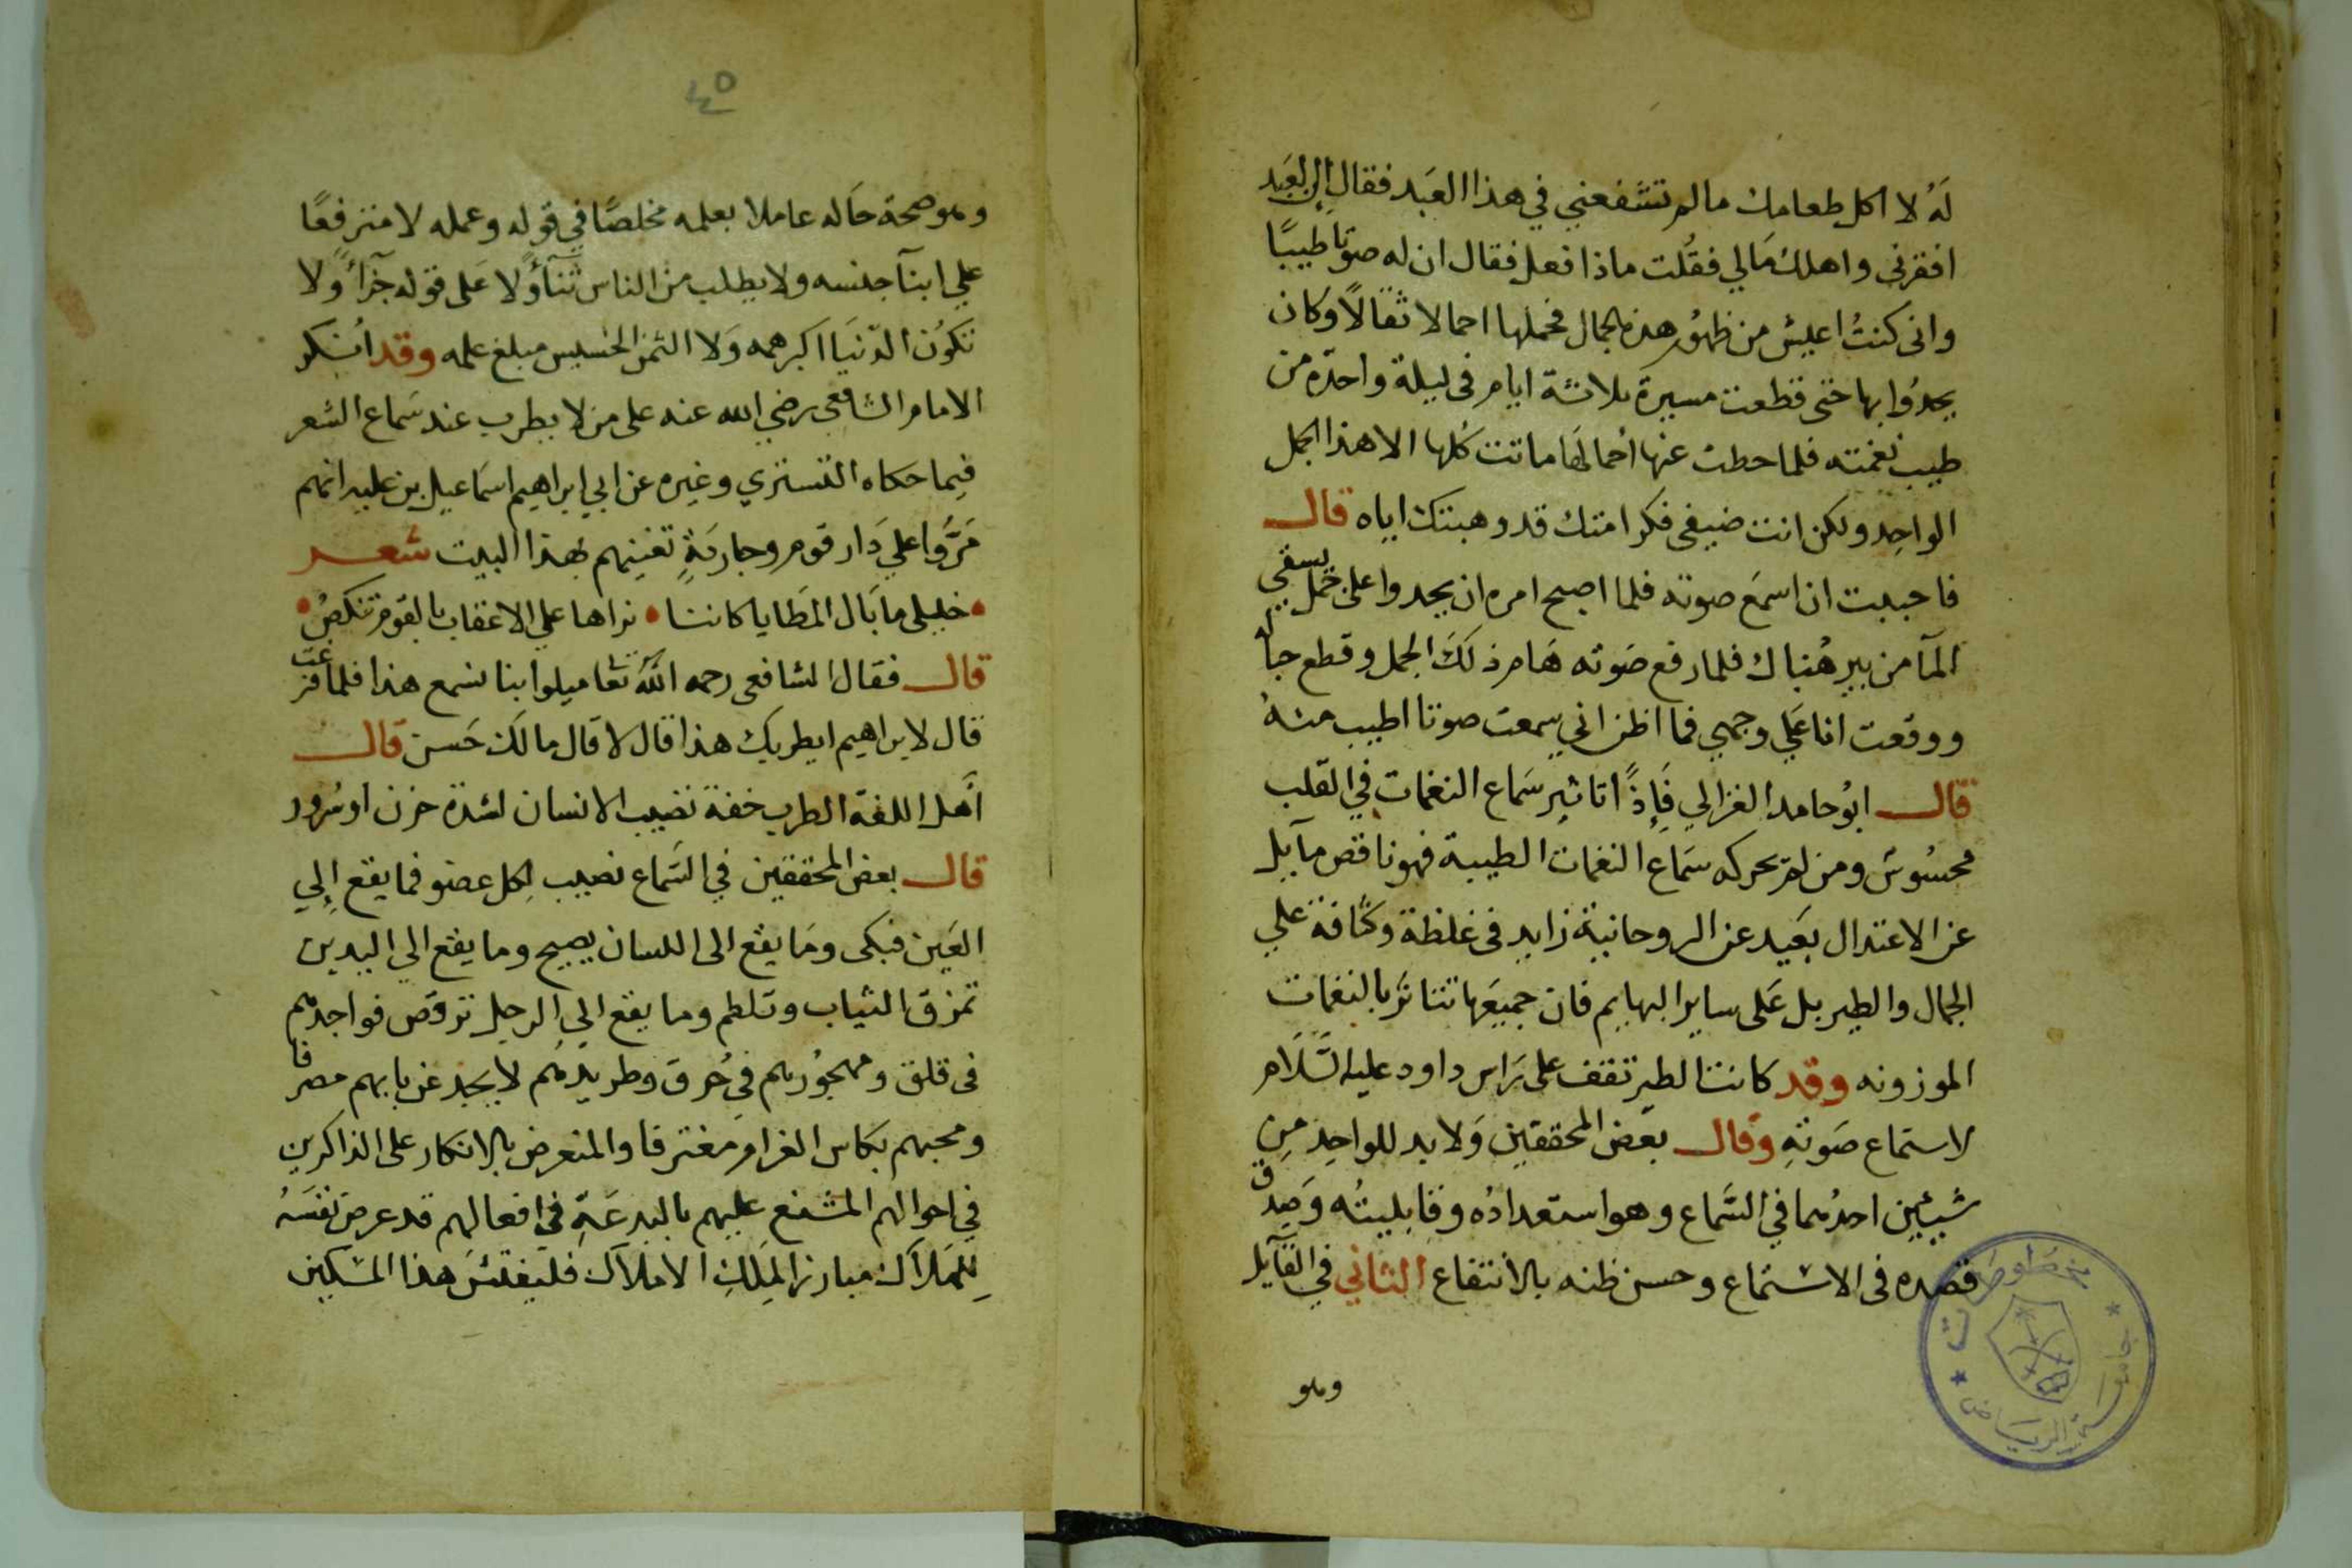 لَهُ لا اكل طعامك مالم تشَفعني في هذا العَبد فقال ان العَبد
افقرني واهلك مَالي فقُلت ماذا فعل فقال ان له صوتا طيبًا
واني كنتُ اعيش من ظهوُر هذه الجمال فحملها احمالا ثقالًا وكان
يحدُوا بها حتى قطعت مسيرة ثلاثة ايام في ليلة واحدة من
طيب نغمته فلما حطت عنها احمالهَا ماتت كُلها الا هذا الجمل
الواحِد ولكن انت ضيفي فكرامتك قد وهبتك اياه قال
فاحببت ان اسمَع صوته فلما اصبح امره ان يحدوا على جمل يسقي
المآ من بير هُناك فلما رفع صَوته هَام ذلكَ الجمل وقطع حباله
ووقعت انا عَلي وجهي فما اظن اني سمعت صوتا اطيب منهُ
قال ابوُ حامد الغزالي فَإِذًا تاثير سَماع النغمات في القلب
محسُوسٌ ومن لم يحركه سَماع النغمات الطيبة فهو ناقص مآيل
عن الاعتدال بعَيد عن الروحانية زايد في غلظة وكثافة علي
الجمال والطير بل عَلى ساير البهايم فان جميعَها تتاثر بالنغمات
الموزونه وقد كانت الطير تقف على رَاس داود عليه السَّلَام
لاستماع صَوتهِ وقال بعَض المحققين وَلابد للواحِد مِن
شيئين احدُهما في السَّماع وهو استعدادُه وقابليتُه وَصِدق
قصَده في الاستماع وحسن ظنه بالانتفاع الثاني في القآيل
وهو
مخطوطات
جامعة الرياض
٤٥
وهو صحة حَاله عاملا بعلمه مخلصًا في قوله وعمله لا مترفعًا
علي ابنآ جنسه ولا يطلب من الناس ثنآءً ولا عَلى قوله جزآءً ولا
تكوُن الدّنيَا اكبر همه وَلا الثمن الخسيس مبلغ علمه وقد انكر
الامام الشافعي رضي الله عنه على من لا يطرب عند سَماع الشعر
فيما حكاه التستري وغيره عن ابي ابراهيم اسمَاعيل بن علية انهم
مَرُّوا علي دَار قوم وجاريَةٍ تغنيهم بهذا البيت شعر
خليلي ما بَال المطَايا كاننا ٠ نراها علي الاعقاب بالقوم تنكصُ
قال فقال الشافعي رحمه اللّٰه تعا ميلوا بنا نسمع هذا فلما فزعت
قال لابراهيم ايطربك هذا قال لا قال مالَك حَس قال
أهَل اللغة الطرب خفة تصيب الانسان لشدة حزن او سُرور
قال بعض المحققين في السَّماع نصيب لِكل عضو فما يقع إِلي
العَين فبكى ومَا يقع الى اللسان يصيح وما يقع الي اليدين
تمزق الثياب وتلطم وما يقع الي الرجل ترقص فواجدهم
في قلق ومهجوُرهم في حُرق وطريدهُم لا يجد عن بابهم مصرفا
ومحبهم بكاس الغرام مغترفا والمتعرض بالانكار على الذاكرين
في احوالهم المشنع عليهم بالبدعَةِ في افعالهم قد عرض نفسَهُ
لِلهَلاَك مبارز المَلِكِ الاملاَك فليفتش هذا المسكين